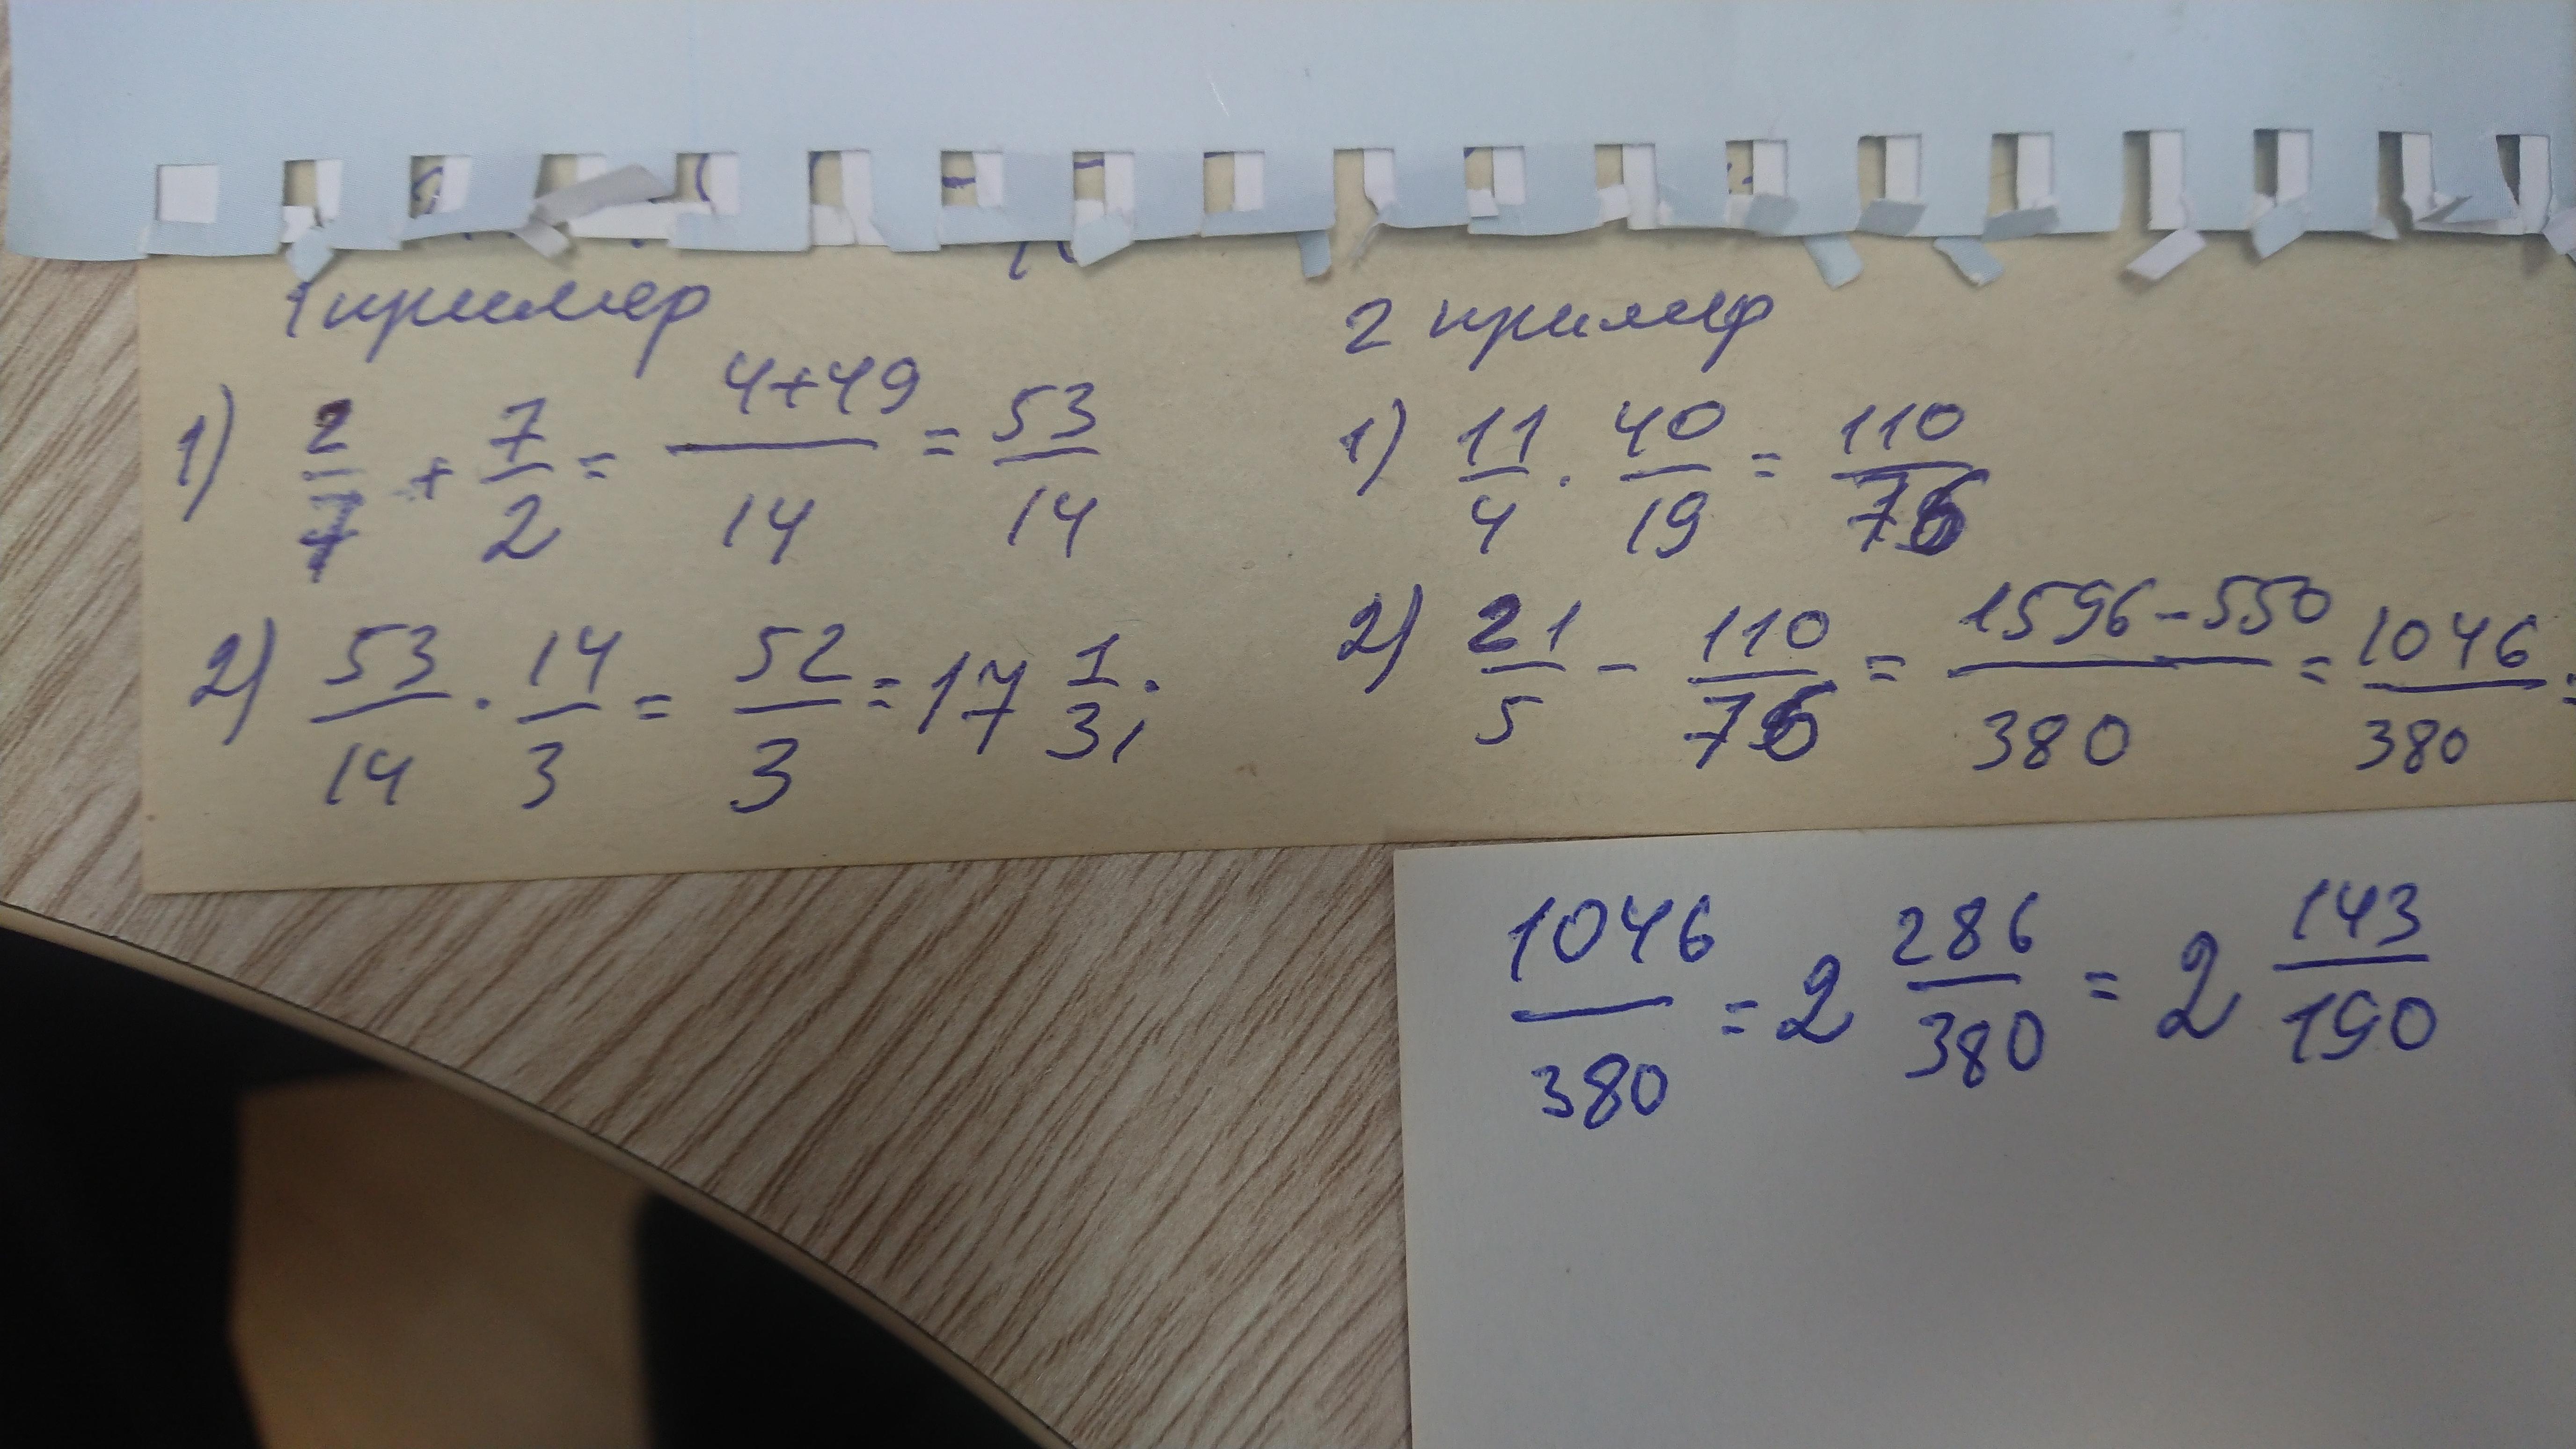 1 пример
1) 2/7 + 7/2 = 4+49/14 = 53/14
2) 53/14 · 14/3 = 52/3 = 17 1/3;
2 пример
1) 11/4 · 40/19 = 110/76
2) 21/5 - 110/76 = 1596-550/380 = 1046/380 =
1046/380 = 2 286/380 = 2 143/190